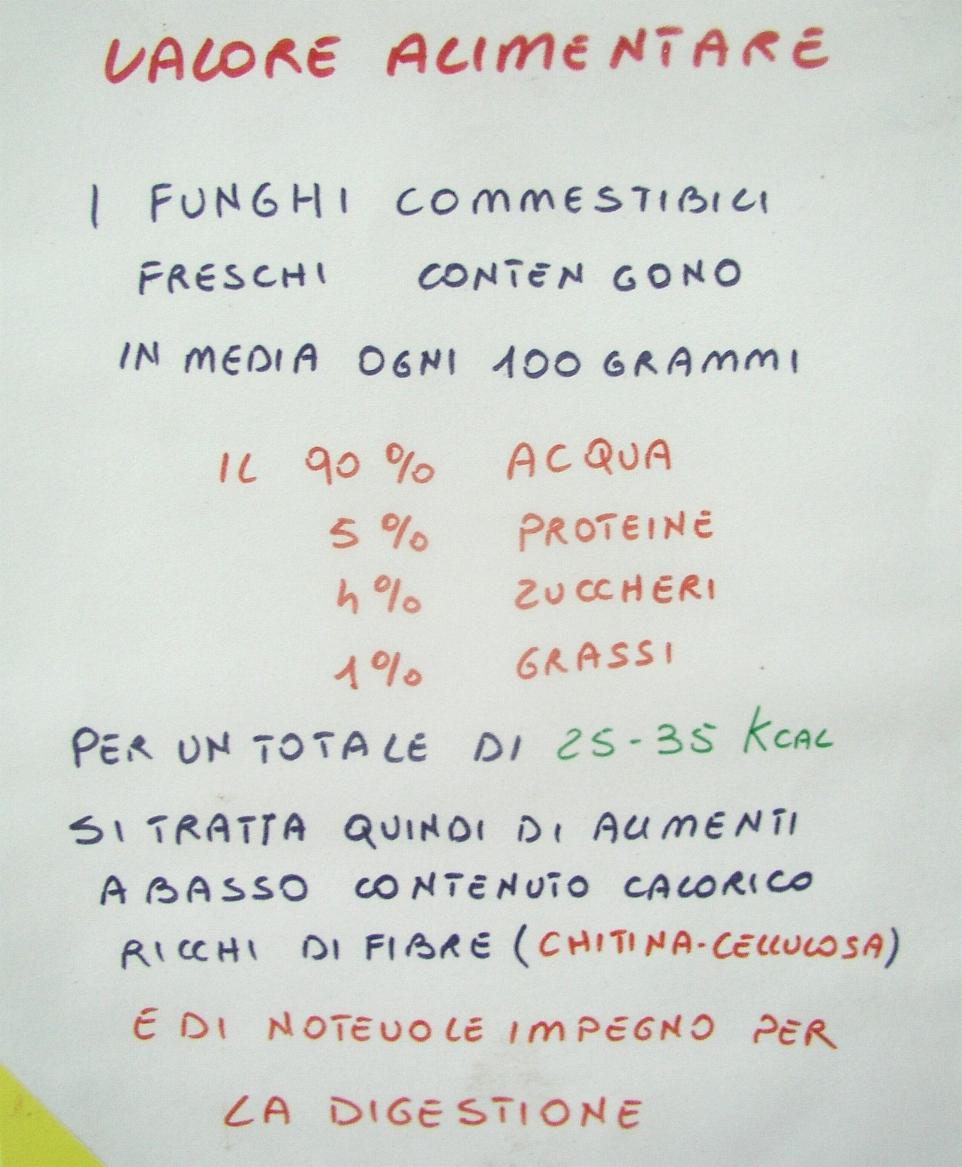 VALORE ALIMENTARE
I FUNGHI COMMESTIBILI
FRESCHI CONTENGONO
IN MEDIA OGNI 100 GRAMMI
IL 90% ACQUA
5% PROTEINE
4% ZUCCHERI
1% GRASSI
PER UN TOTALE DI 25-35 KCAL
SI TRATTA QUINDI DI ALIMENTI
A BASSO CONTENUTO CALORICO
RICCHI DI FIBRE (CHITINA-CELLULOSA)
E DI NOTEVOLE IMPEGNO PER
LA DIGESTIONE